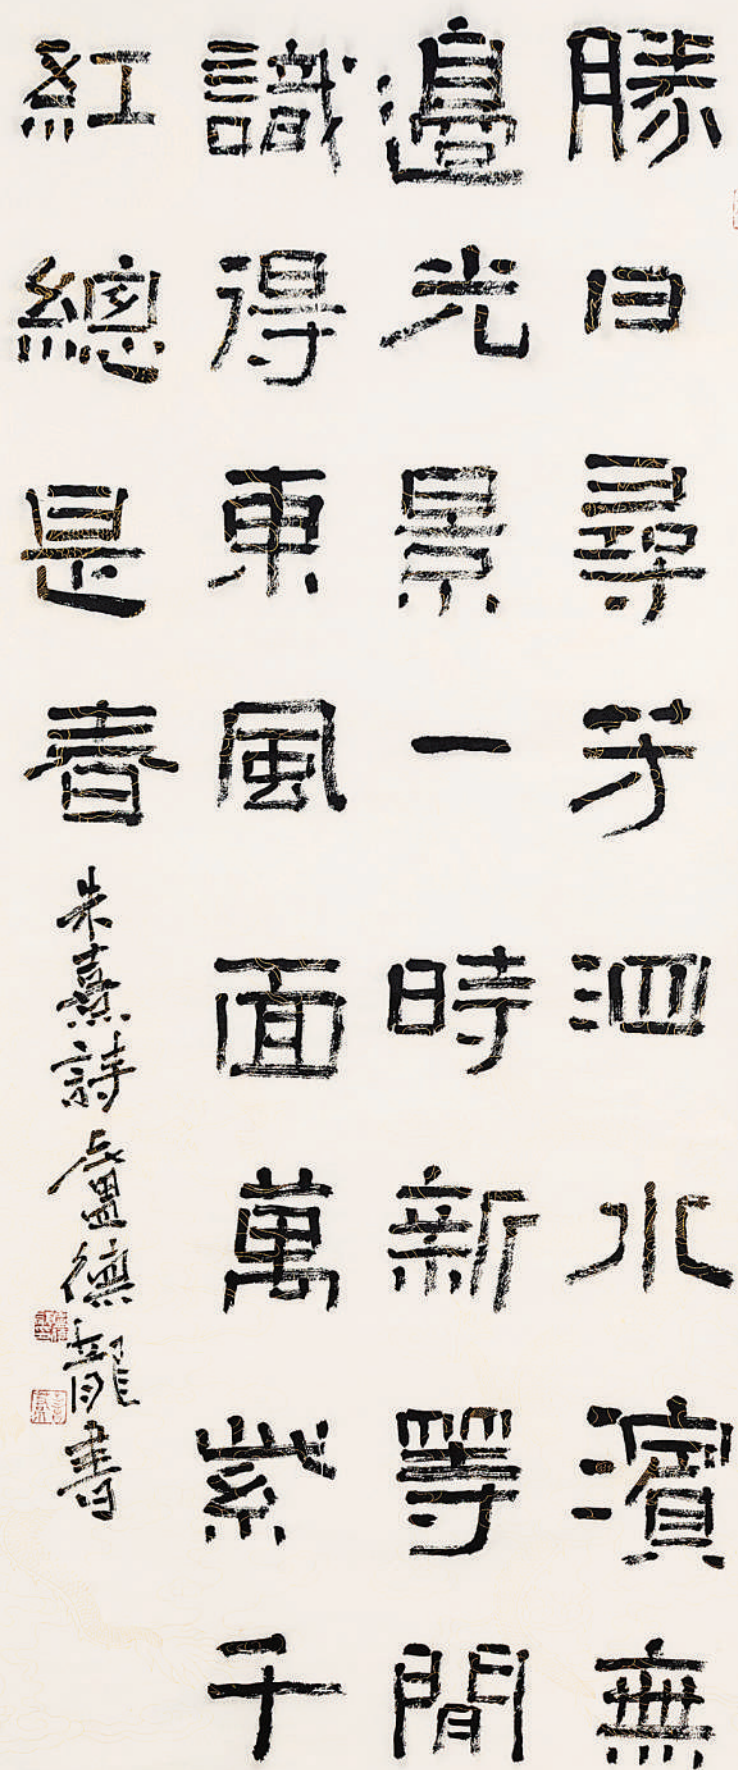 勝日尋芳泗水濱無
邊光景一時新等閒
識得東風面萬紫千
紅總是春
朱熹詩盧德龍書